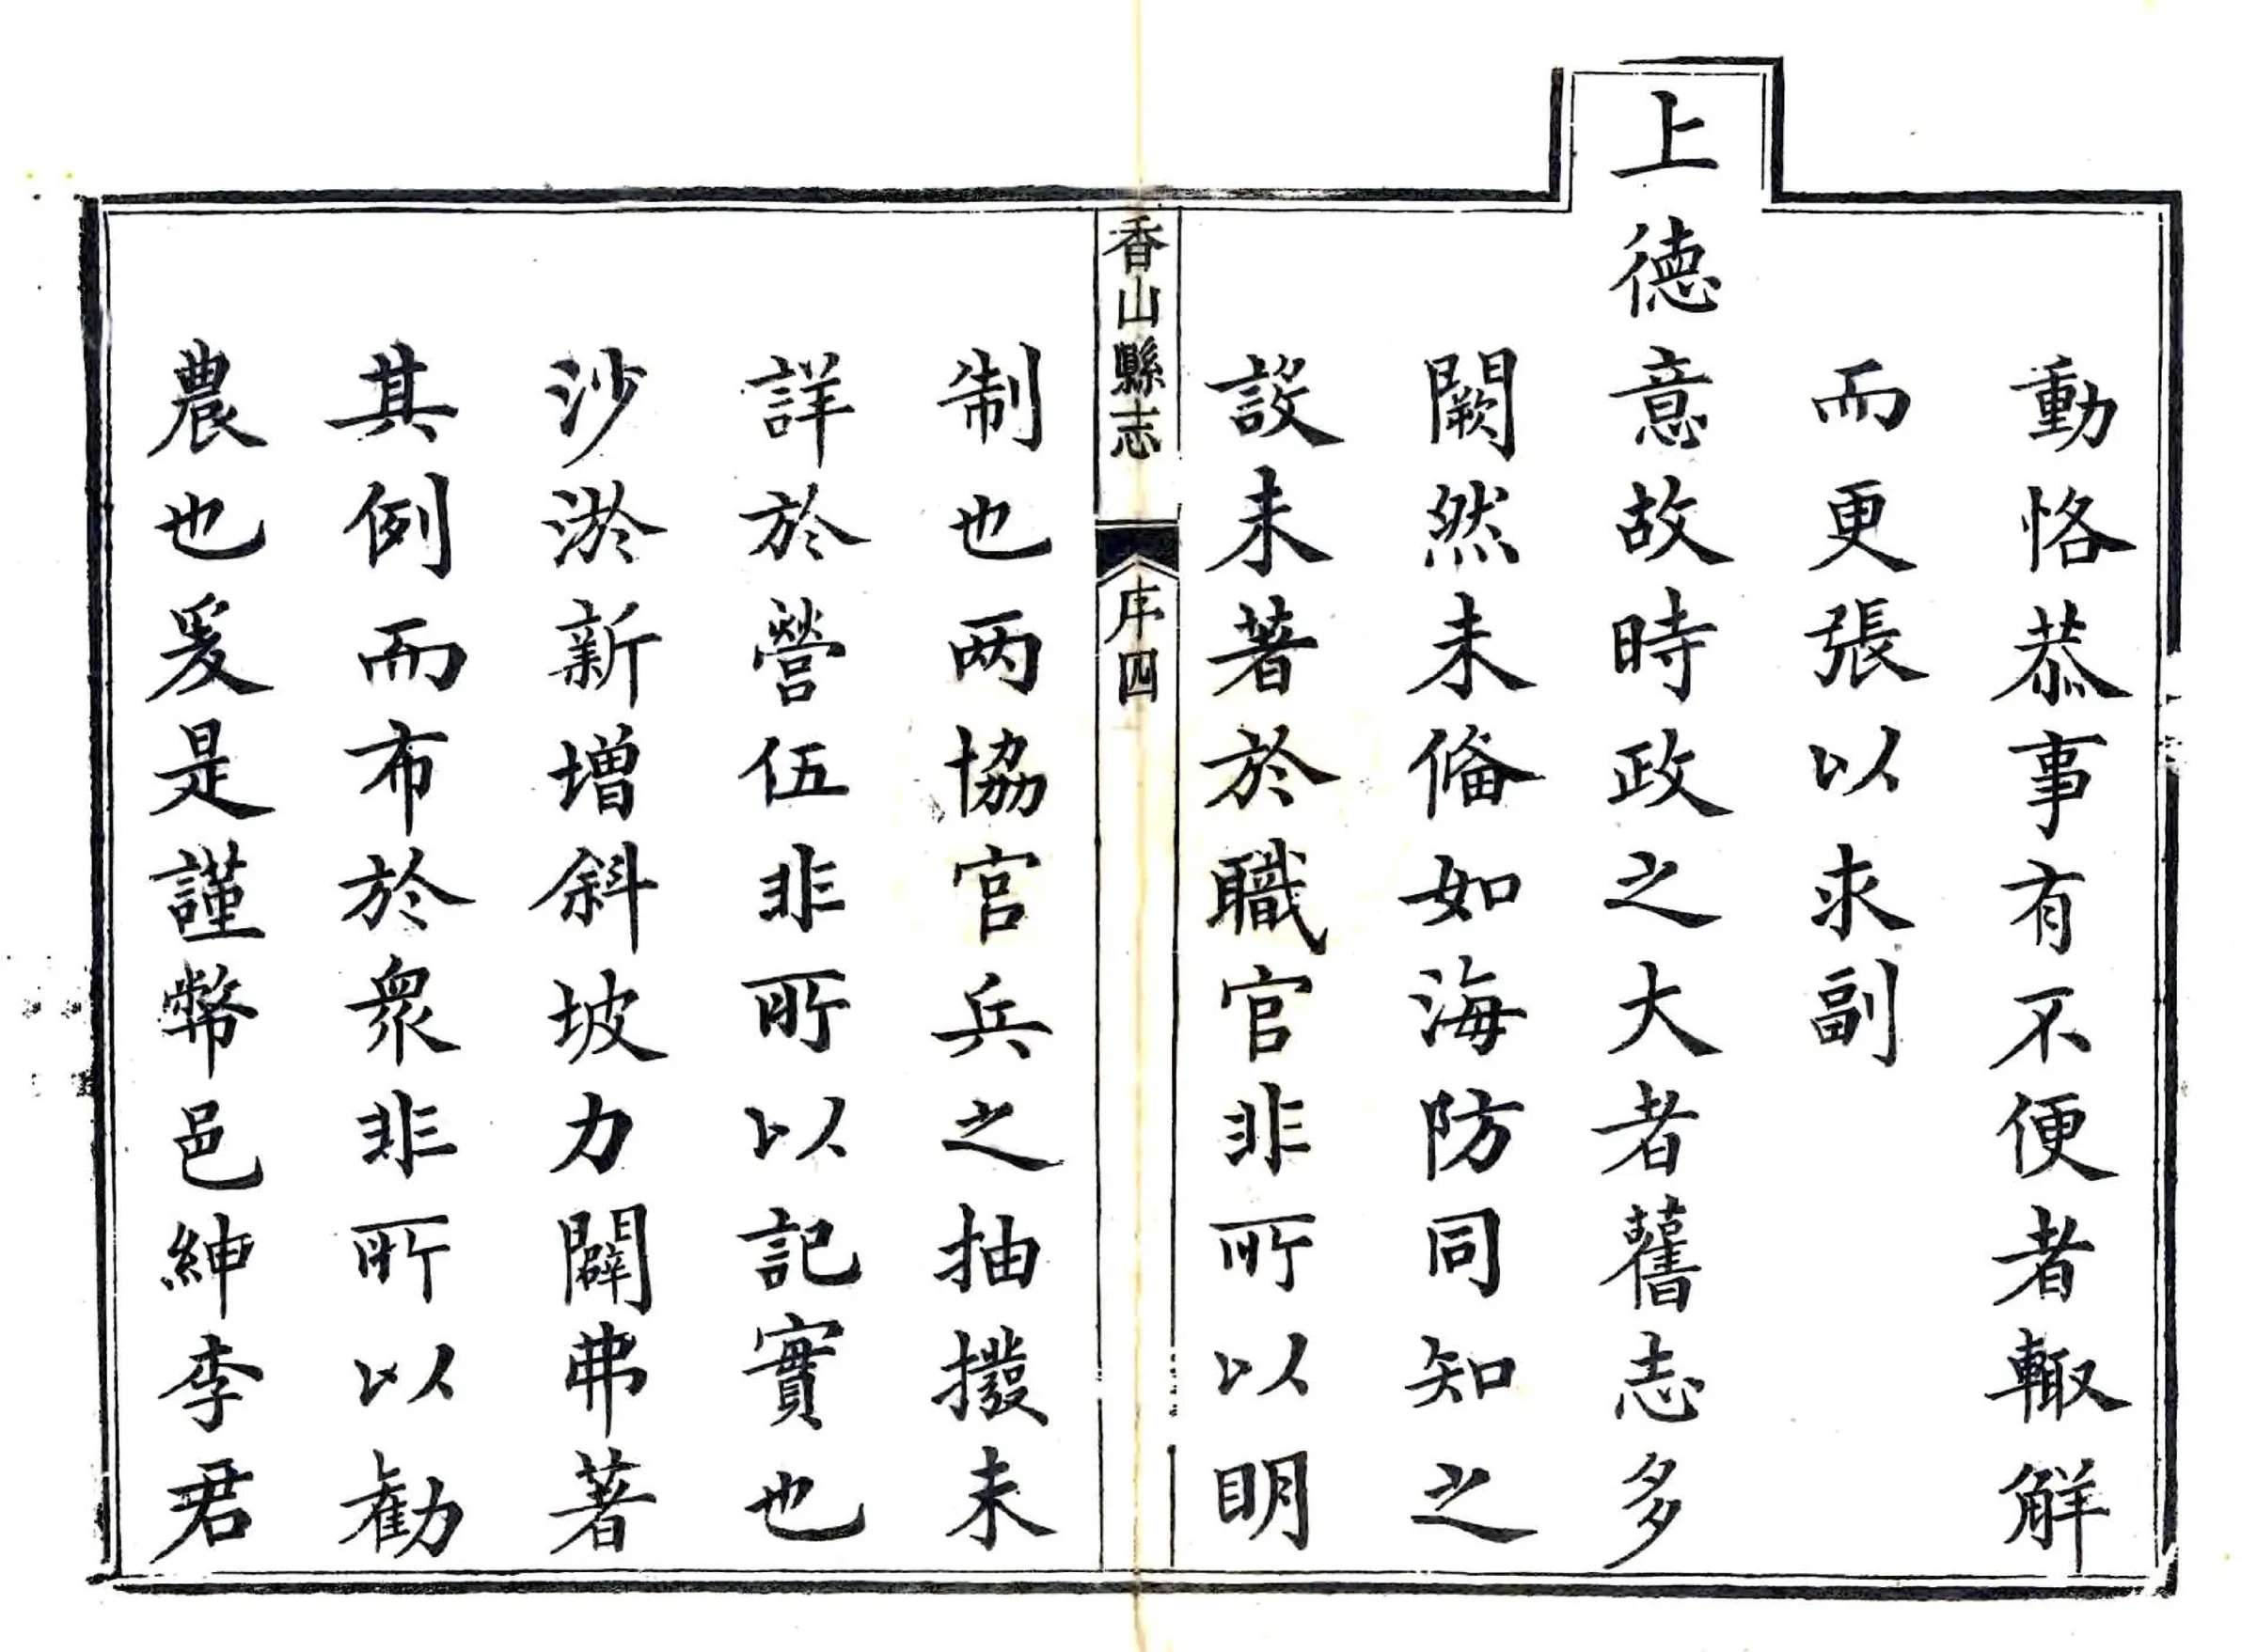 動恪恭事有不便者輙觧
而更張以求副
上德意故時政之大者舊志多
闕然未俻如海防同知之
設未著於職官非所以明
香山縣志
序四
制也两協官兵之抽撥未
詳於營伍非所以記實也
沙淤新增斜坡力闢弗著
其例而布於衆非所以勸
農也爰是謹幣邑紳李君